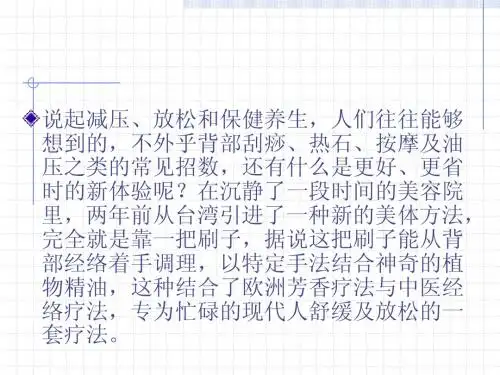 说起减压、放松和保健养生，人们往往能够
想到的，不外乎背部刮痧、热石、按摩及油
压之类的常见招数，还有什么是更好、更省
时的新体验呢？在沉静了一段时间的美容院
里，两年前从台湾引进了一种新的美体方法，
完全就是靠一把刷子，据说这把刷子能从背
部经络着手调理，以特定手法结合神奇的植
物精油，这种结合了欧洲芳香疗法与中医经
络疗法，专为忙碌的现代人舒缓及放松的一
套疗法。